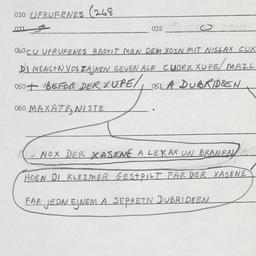 030 UFRUFENES (268
031 032
040 CU UFRUFENES BASNT MEN DEM XOSN MIT NISLAX CUK
DI MENCTN VOS ZAJNEN GEVEN ALE CUDER XUPE/ MAZL
050 + BEFOR DER XUPE/ 051 A DUBRIDREN
060 MAXATEJNISTE
NOX DER XASENE A LEKAX UN BRANFN
HOBN DI KLEZMER GESTPILT FAR DER XASENE
FAR JEDN EJNEM A SEPRETN DUBRIDREN